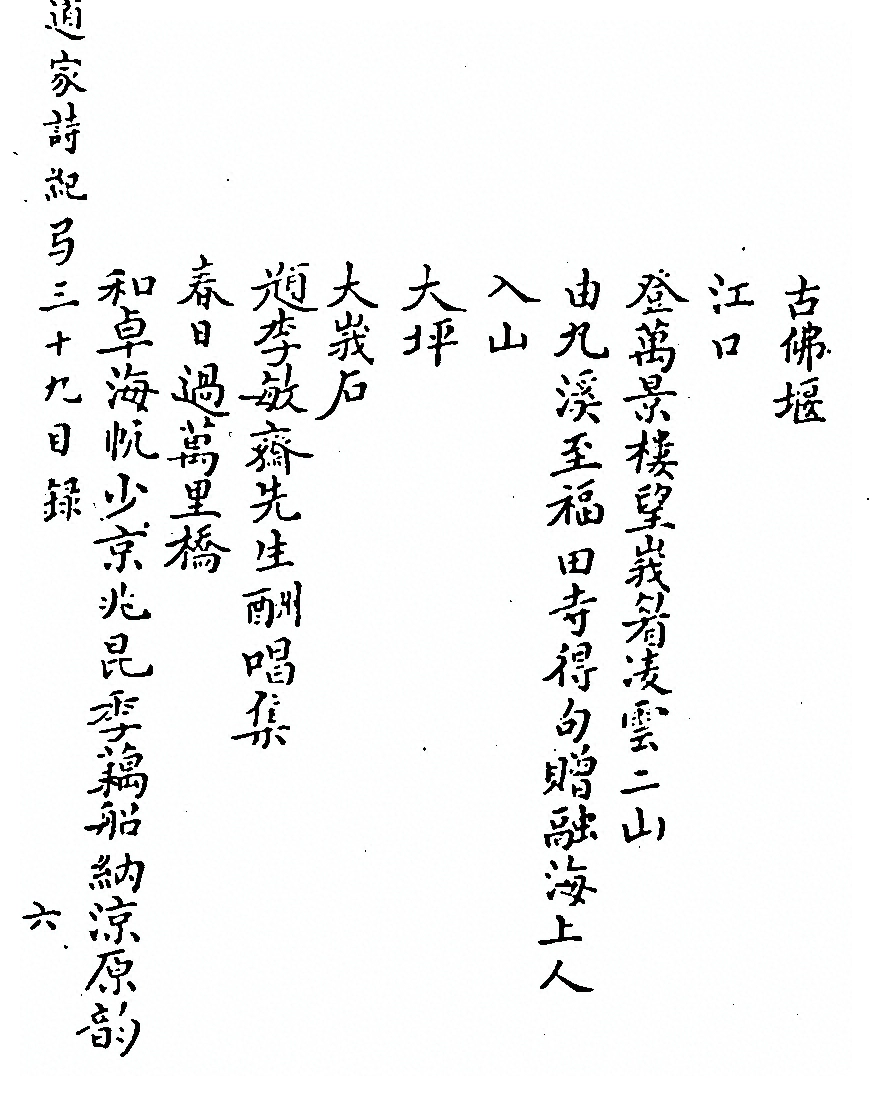 古佛堰
江口
登萬景樓望峩眉凌雲二山
由九溪至福田寺得句贈融海上人
入山
大坪
大峩石
題李敏齋先生酬唱集
春日過萬里橋
和卓海帆少京兆昆季藕船納涼原韵
道家詩紀弓三十九目録
六